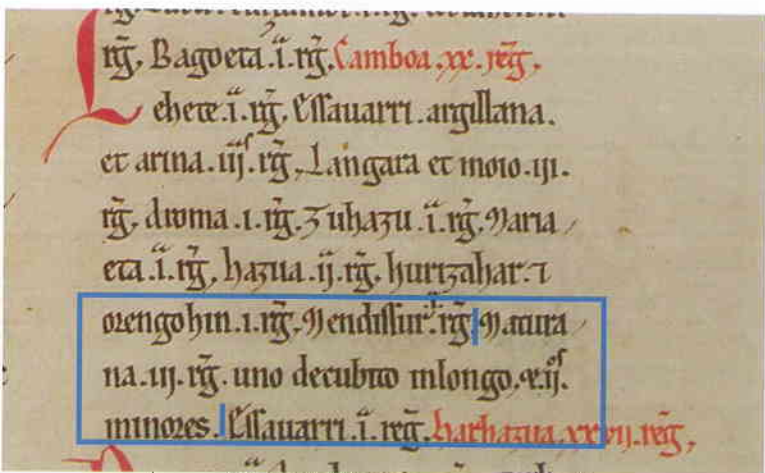 rg̃, Bagoeta .i. rg̃, Camboa .xx. reg̃,
Lehete .i. rg̃, Essauarri .argillana.
et arina .iij. rg̃, Langara et moio .iij.
rg̃, druma .i. rg̃. Zuhazu .i. rg̃, Maria
eta .i. rg̃, hazua .ij. rg̃, hurizahar. ⁊
orengohin .i. rg̃, Mendissur .i. rg̃, Matura
na .iij. rg̃. uno decubito inlongo, ⁊ .ij.os
minores. Essauarri .i. reg̃. harhazua .xxvij. reg̃,